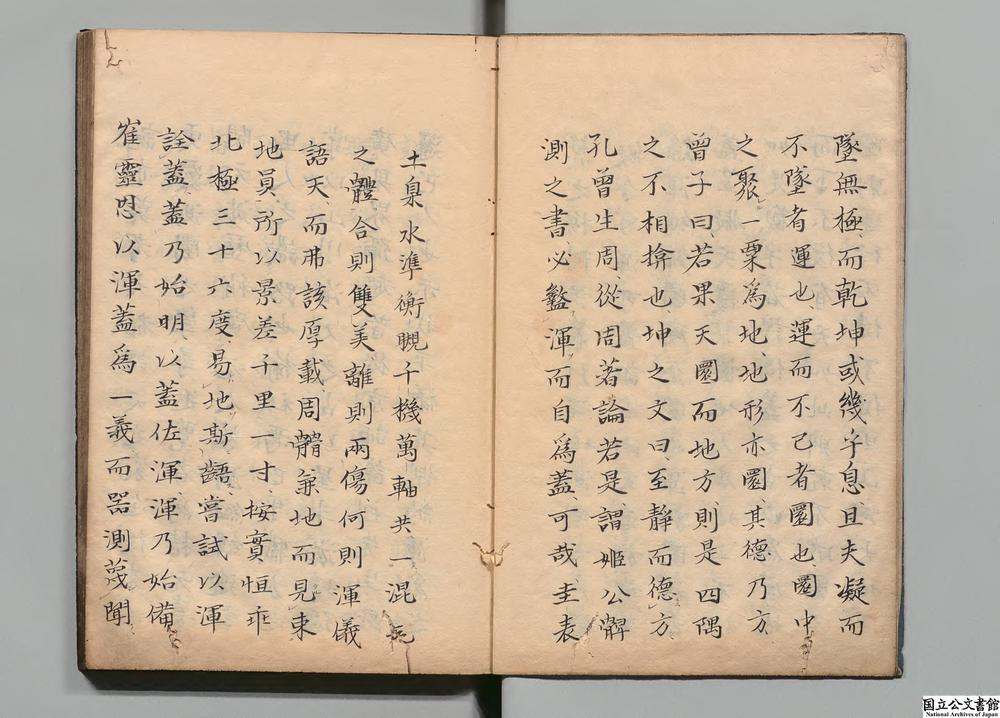 墜無極、而乾坤或幾乎息且夫凝而
不墜者運也、運而不已者圜也、圜中
之聚、一粟爲地、地形亦圜、其德乃方、
曾子曰、若果天圜而地方、則是四隅
之不相揜也、坤之文曰至靜而德方、
孔曾生周從周著論若是謂姬公髀
測之書、必盭渾、而自爲蓋、可哉、圭表
土臬水準衡䚕千機萬軸共一混元
之體合則雙美離則兩傷、何則渾儀
語天而弗該厚載周髀兼地而見束
地員、所以景差千里一寸、按實恒乖
北極三十六度、易地斯齬、嘗試以渾
詮蓋、蓋乃始明、以蓋佐渾渾乃始備
崔靈恩以渾蓋爲一義而器測蔑聞
国立公文書館
National Archives of Japan